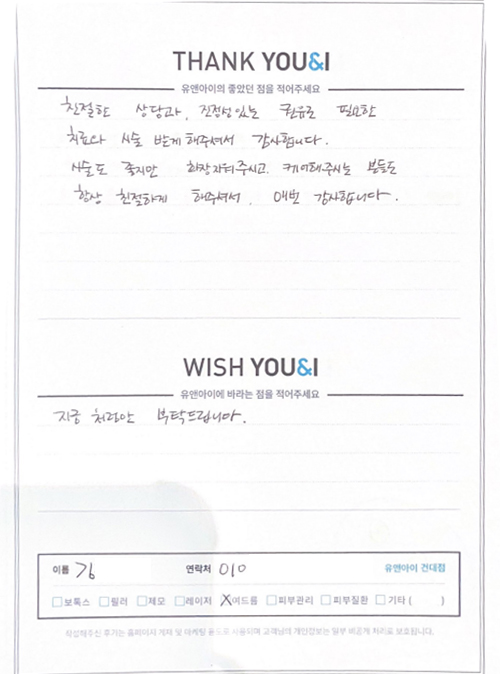 THANK YOU&I
유앤아이의 좋았던 점을 적어주세요
친절한 상담과, 진정성있는 권유로 필요한
치료와 시술 받게 해주셔서 감사합니다.
시술도 좋지만 화장 지워주시고. 케어해주시는 분들도
항상 친절하게 해주셔서. 매번 감사합니다.
WISH YOU&I
유앤아이에 바라는 점을 적어주세요
지금 처럼만 부탁드립니다.
이름 김 연락처 010 유앤아이 건대점
보톡스 필러 제모 레이저 여드름 피부관리 피부질환 기타 ( )
작성해주신 후기는 홈페이지 게재 및 마케팅 용도로 사용되며 고객님의 개인정보는 일부 비공개 처리로 보호됩니다.